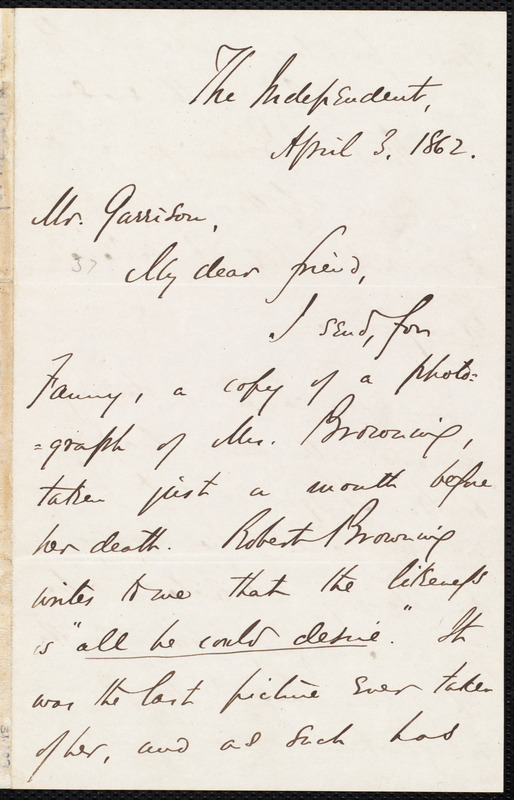 The Independent,
April 3. 1862.
Mr. Garrison,
37
My dear friend,
I send, for
Fanny, a copy of a photo=
=graph of Mrs. Browning,
taken just a month before
her death. Robert Browning
writes to me that the likeness
is "all he could desire." It
was the last picture ever taken
of her, and as such has